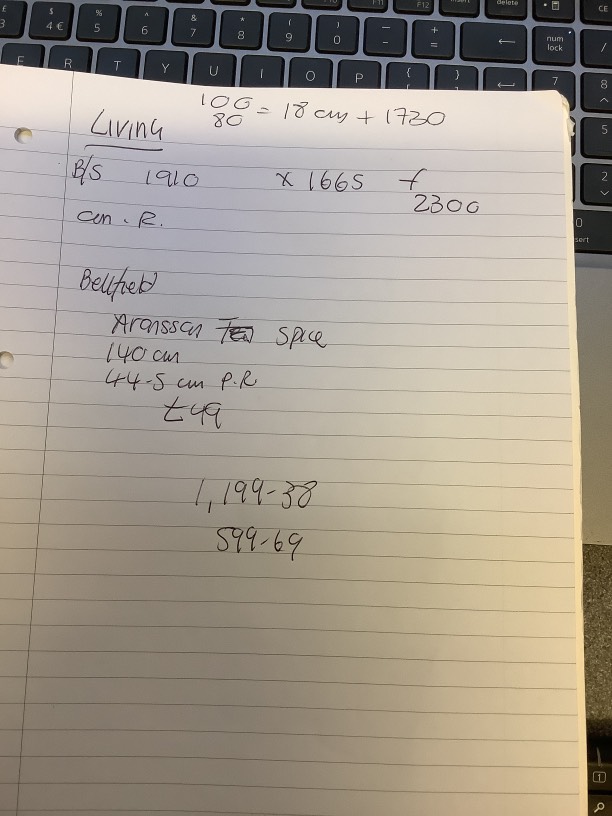 £ 3
$ 4 €
% 5
^ 6
& 7
* 8
( 9
) 0
_ -
+ =
←
num lock
CE
/
E R T Y U I O P { }
7
8
5
2
0
F12
delete
100
80 = 18 cm + 1730
Living
B/S 1910 x 1665 f
2300
cen. R.
Bellfield
Spice
140 cm
44-5 cm P.R
£49
1,199-38
599-69